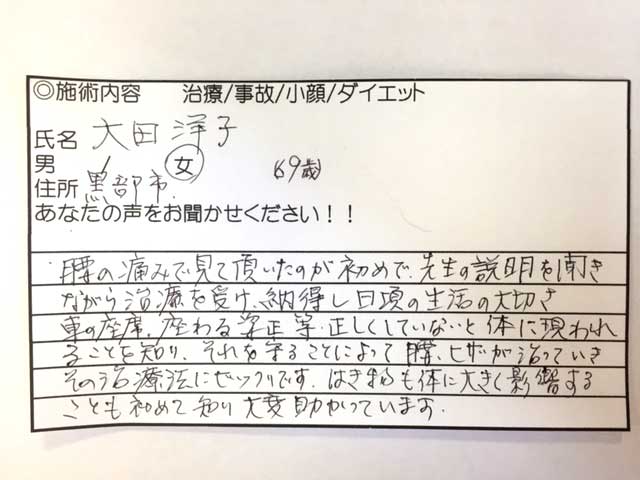 ◎施術内容　治療/事故/小顔/ダイエット
氏名 大田洋子
男 / 女　69歳
住所 黒部市.
あなたの声をお聞かせください！！
腰の痛みで見て頂いたのが初めで、先生の説明を聞き
ながら治療を受け、納得し日頃の生活の大切さ
車の座席、座わる 等.正しくしていないと体に現われ
ることを知り、それを守ることによって腰、ヒザが治っていき
その治療法にビックリです. はき物も体に大きく影響する
ことも初めて知り大変助かっています.